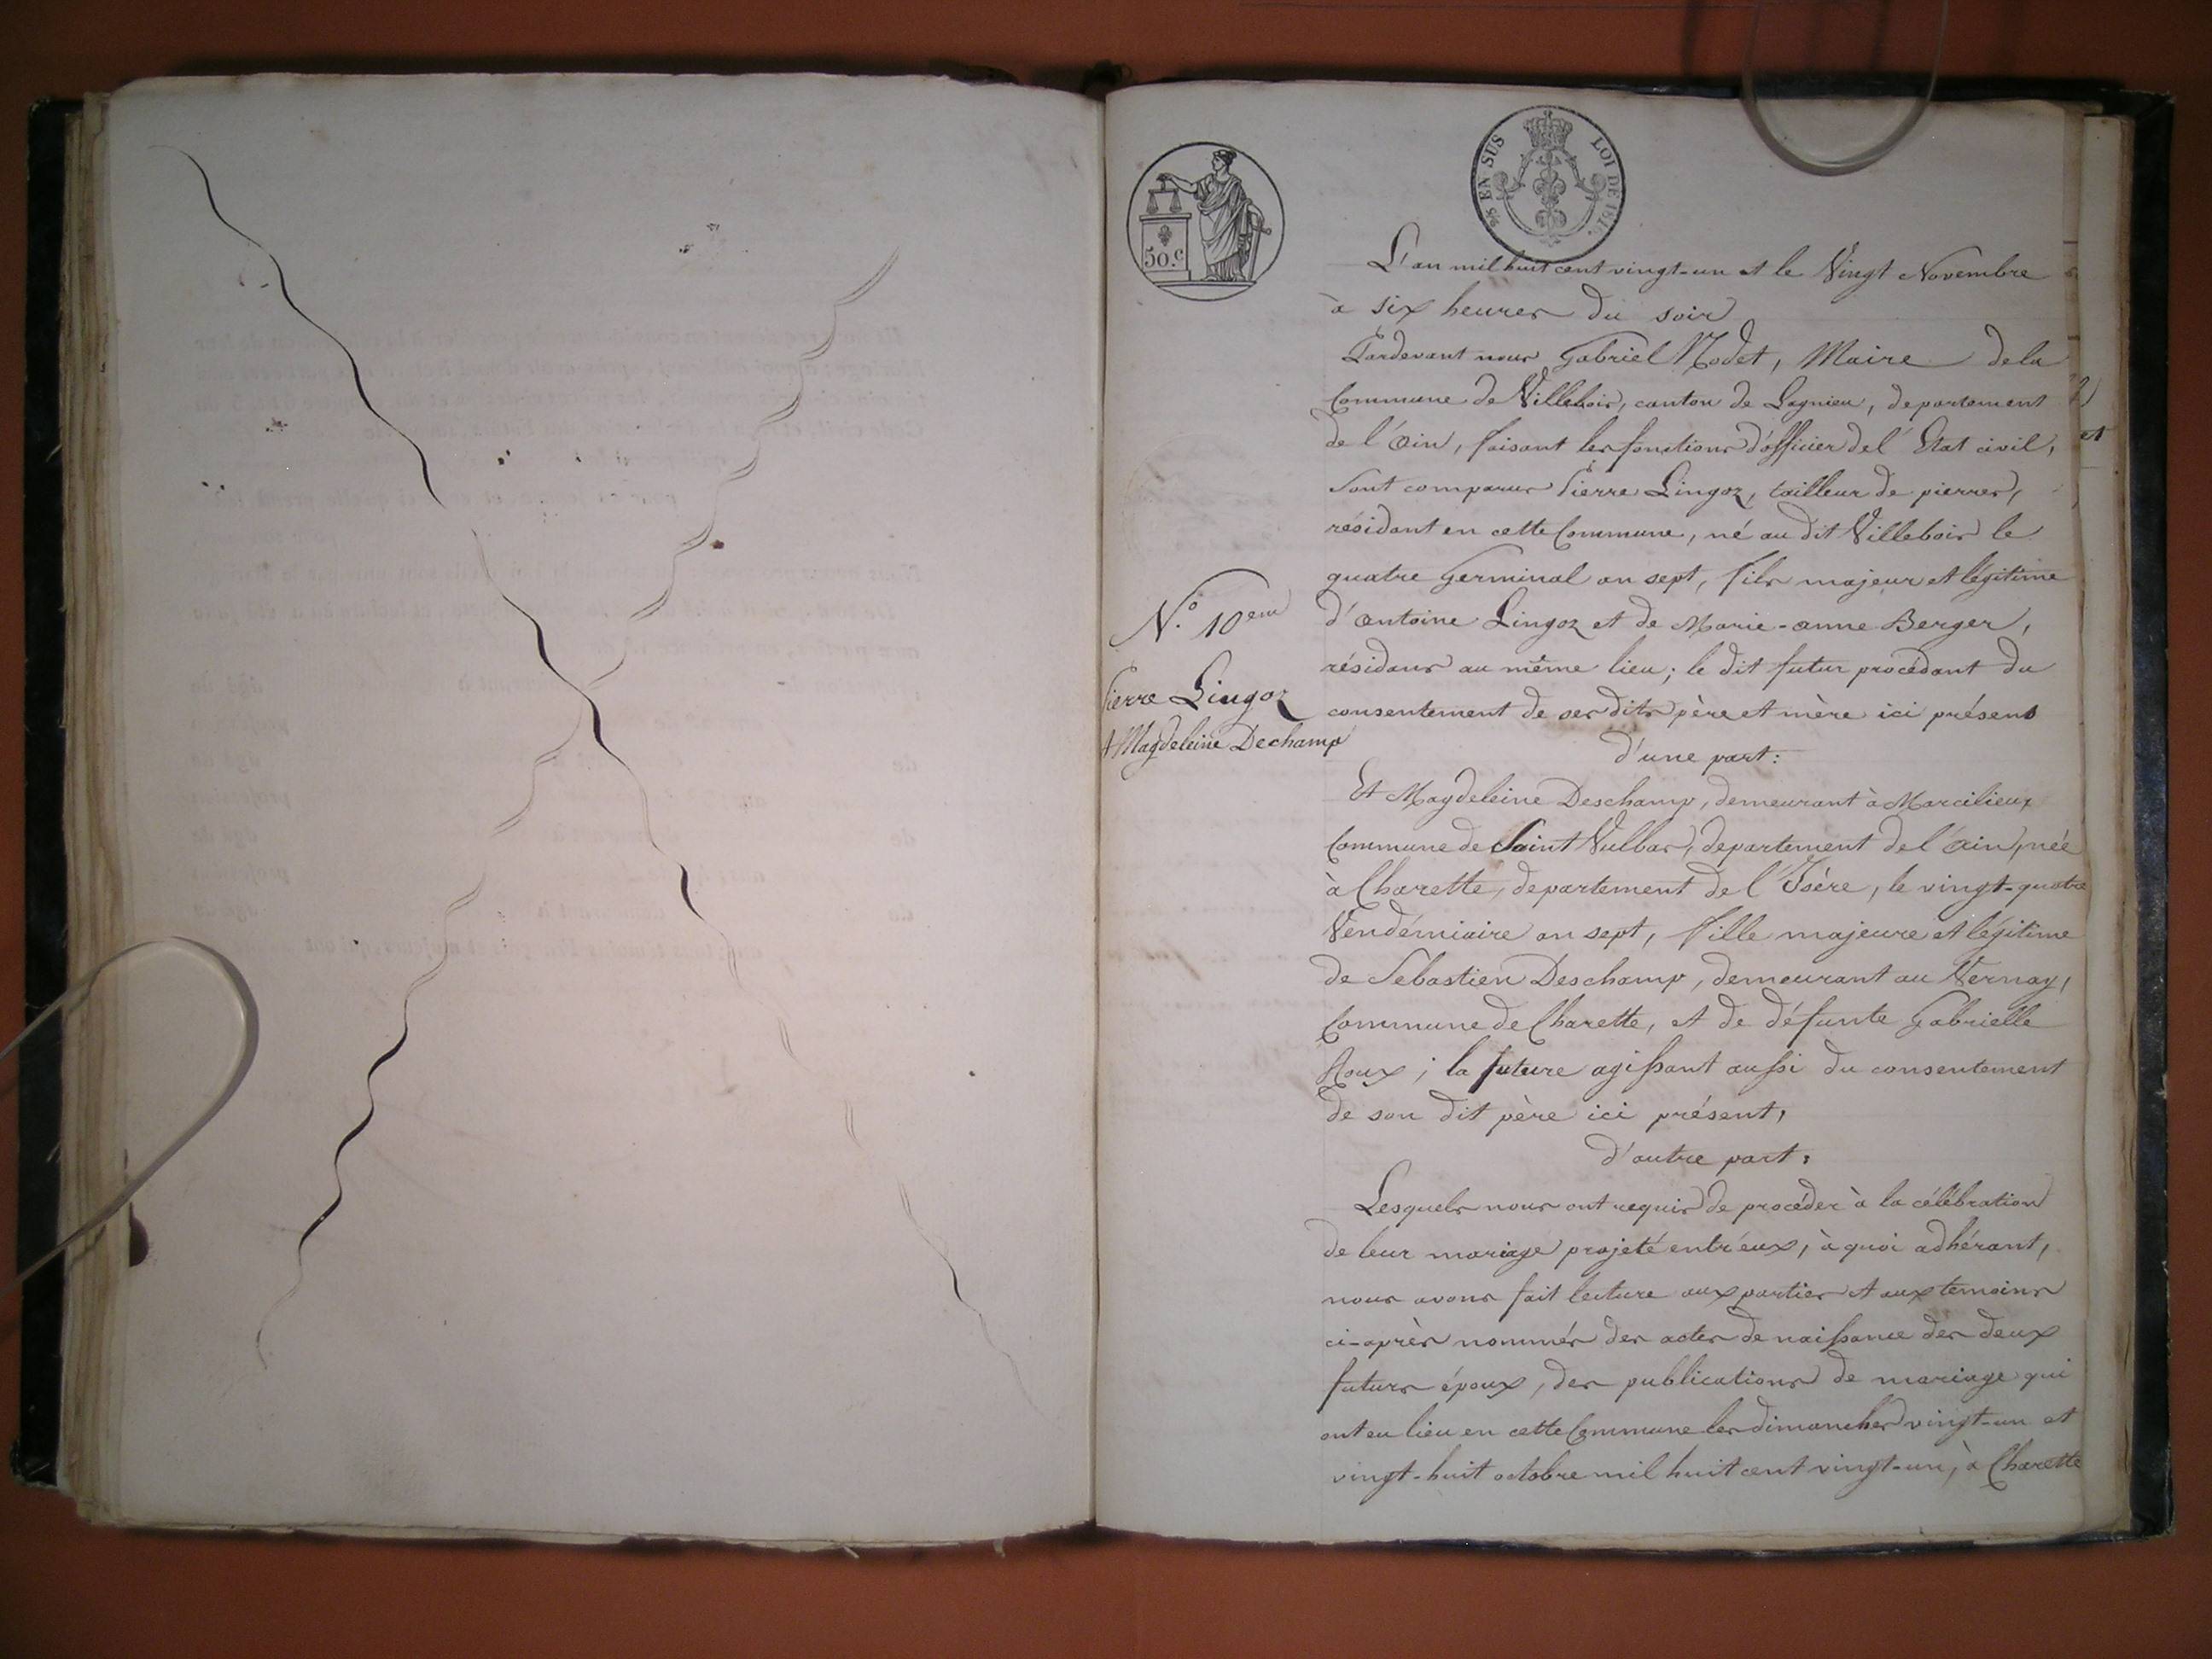 50.c
EN SUS
LOI DE
L'an mil huit cent vingt-un et le Vingt Novembre
à six heures du soir
Pardevant nous Gabriel Nodet, Maire de la
Commune de Villebois, canton de Lagnieu, departement
de l'Ain, faisant les fonctions d'officier de l'Etat civil,
Sont comparus Pierre Lingoz, tailleur de pierres,
résidant en cette Commune, né au dit Villebois le
quatre Germinal an sept, fils majeur et légitime
N.o 10eme
d'antoine Lingoz et de Marie-anne Berger,
résidans au même lieu; le dit futur procédant du
Pierre Lingoz
consentement de ses dits père et mère ici présens
et Magdeleine Dechamp
d'une part:
Et Magdeleine Deschamp, demeurant à Marcilieux
Commune de Saint Vulbas, departement de l'Ain, née
à Charette, departement de l'Isère, le vingt-quatre
Vendémiaire an sept, fille majeure et légitime
de Sebastien Deschamp, demeurant au Vernay,
Commune de Charette, et de défunte Gabrielle
Roux; la future agissant aussi du consentement
de son dit père ici présent,
d'autre part:
Lesquels nous ont requis de procéder à la célébration
de leur mariage projeté entr'eux, à quoi adhérant,
nous avons fait lecture aux parties et aux temoins
ci-après nommés des actes de naissance des deux
futurs époux, des publications de mariage qui
ont eu lieu en cette Commune les dimanches vingt-un et
vingt-huit octobre mil huit cent vingt-un, à Charette
et